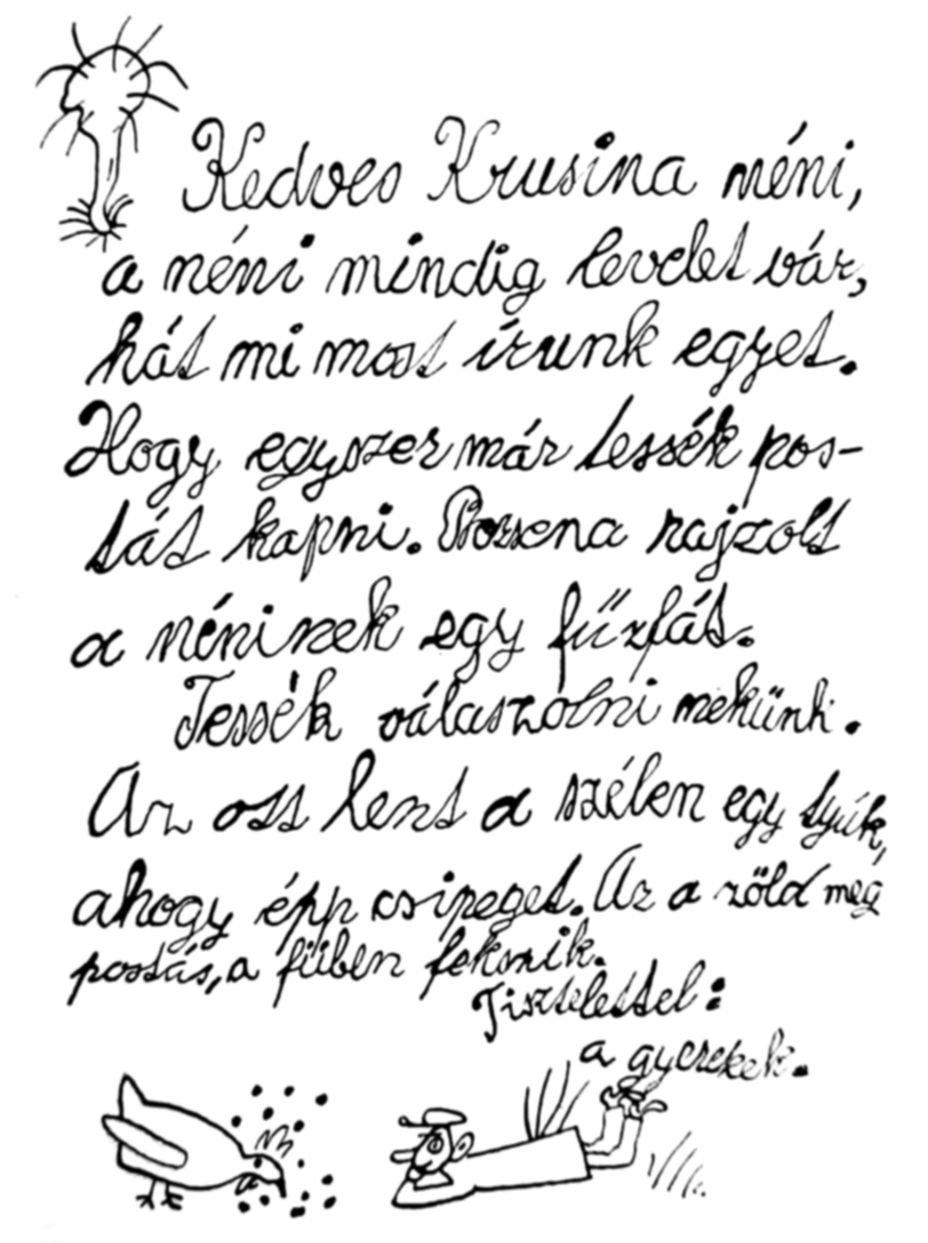 Kedves Krusina néni,
a néni mindig levelet vár,
hát mi most írunk egyet.
Hogy egyszer már tessék pos-
tát kapni. Bozsena rajzolt
a néninek egy fűzfát.
Tessék válaszolni nekünk.
Az ott lent a szélen egy tyúk,
ahogy épp csipeget. Az a zöld meg
postás, a fűben fekszik.
Tisztelettel:
a gyerekek.